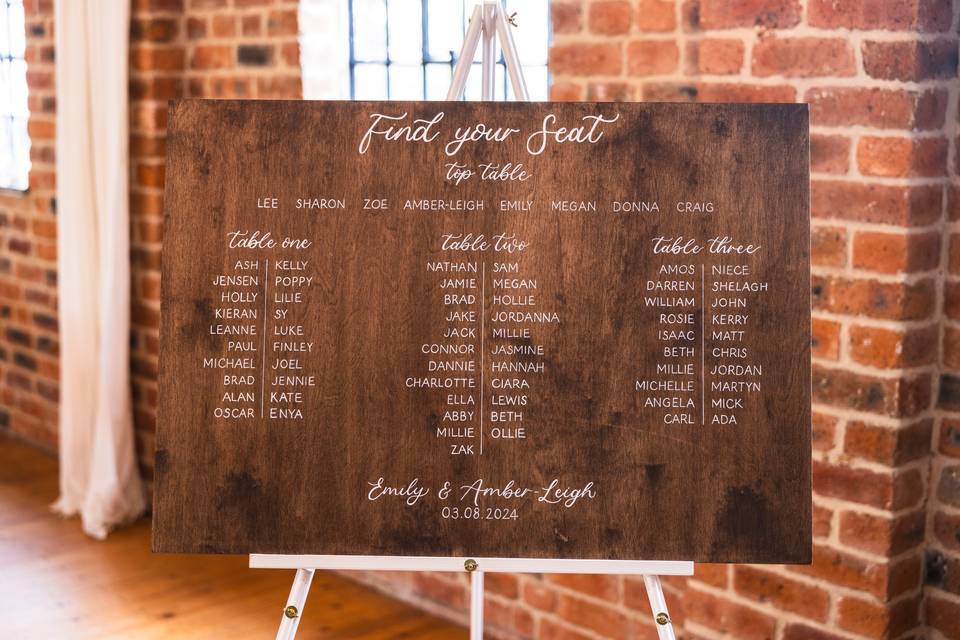 Find your Seat
top table
LEE SHARON ZOE AMBER-LEIGH EMILY MEGAN DONNA CRAIG
table one
ASH KELLY
JENSEN POPPY
HOLLY LILIE
KIERAN SY
LEANNE LUKE
PAUL FINLEY
MICHAEL JOEL
BRAD JENNIE
ALAN KATE
OSCAR ENYA
table two
NATHAN SAM
JAMIE MEGAN
BRAD HOLLIE
JAKE JORDANNA
JACK MILLIE
CONNOR JASMINE
DANNIE HANNAH
CHARLOTTE CIARA
ELLA LEWIS
ABBY BETH
MILLIE OLLIE
ZAK
table three
AMOS NIECE
DARREN SHELAGH
WILLIAM JOHN
ROSIE KERRY
ISAAC MATT
BETH CHRIS
MILLIE JORDAN
MICHELLE MARTYN
ANGELA MICK
CARL ADA
Emily & Amber-Leigh
03.08.2024